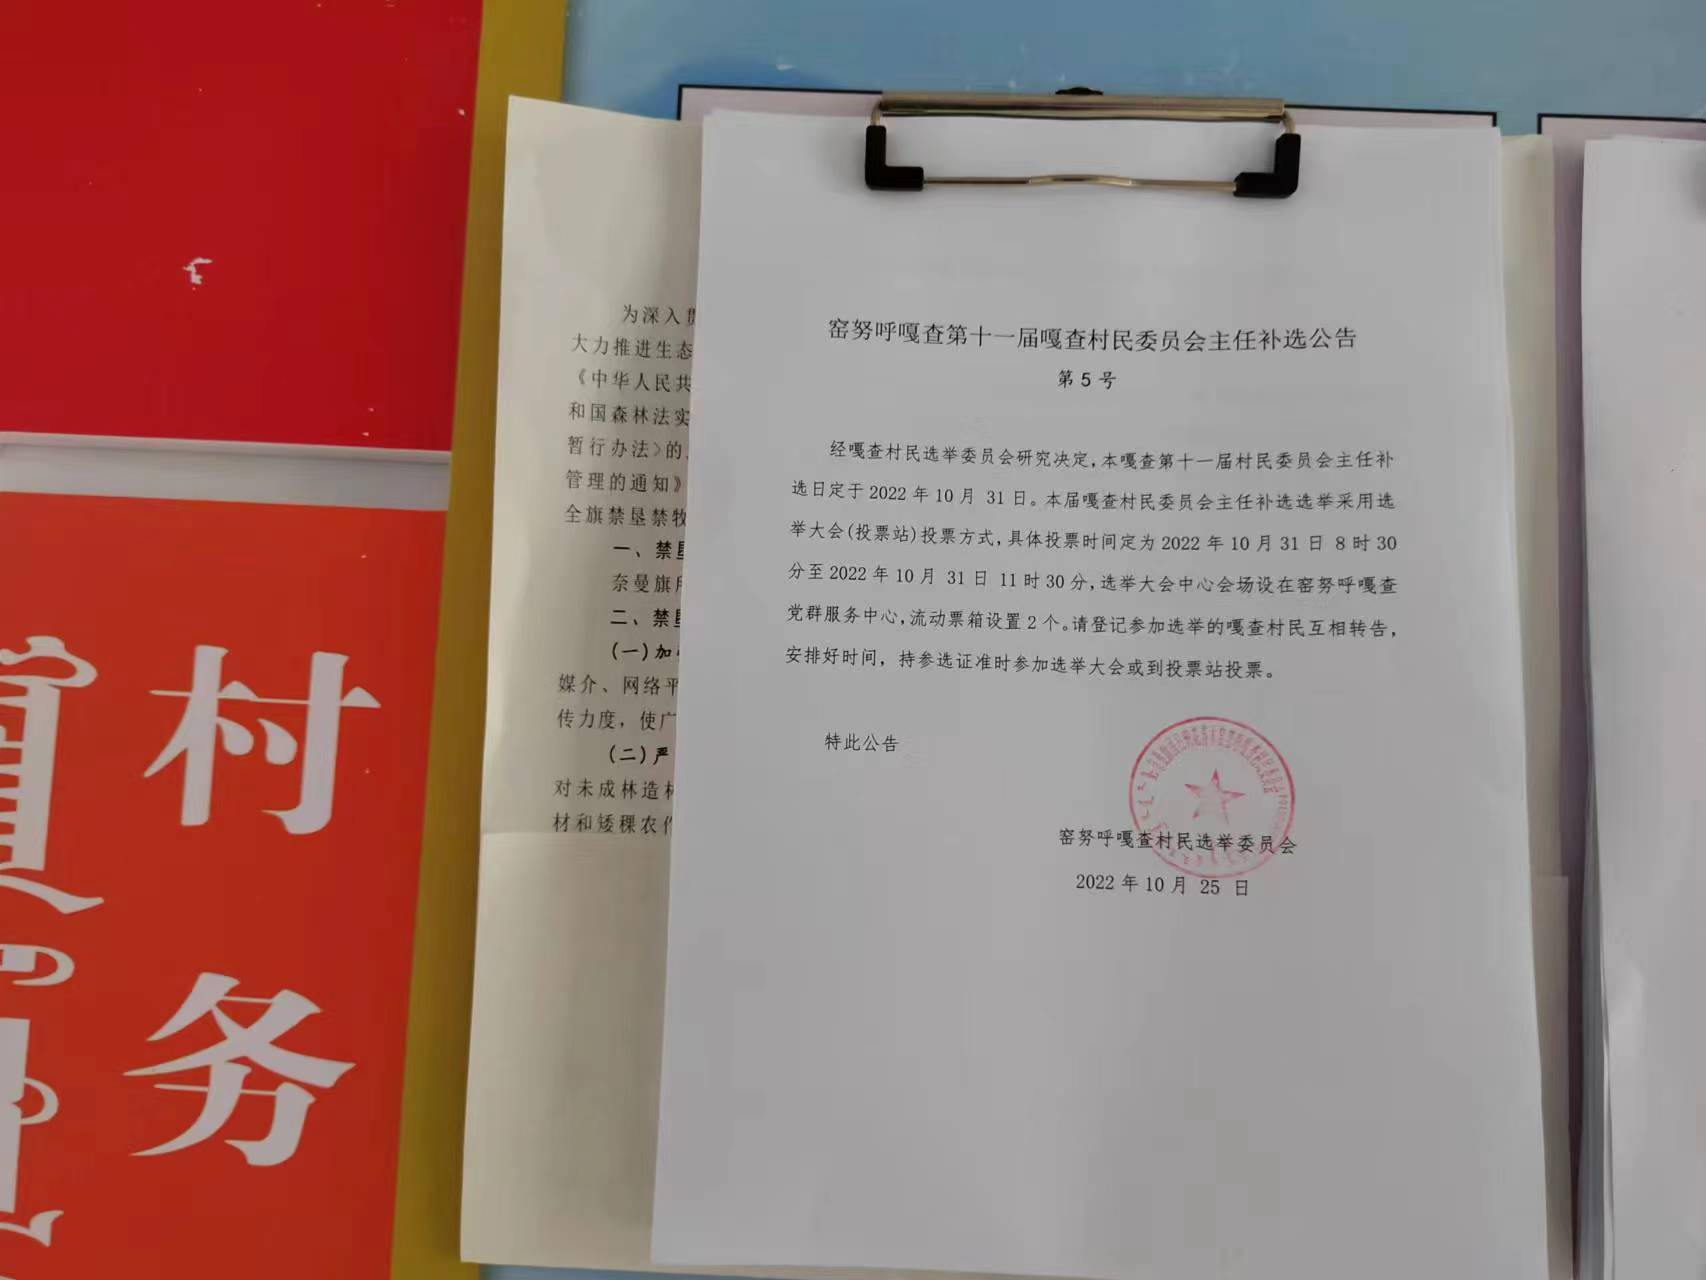 村
务
为深入
大力推进生态
《中华人民共
和国森林法实
暂行办法>的
管理的通知》
全旗禁垦禁牧
一、禁垦
奈曼旗
二、禁垦
(一)加
媒介、网络平
传力度，使广
(二)严
对未成林造林
材和矮稞农作
窑努呼嘎查第十一届嘎查村民委员会主任补选公告
第5号
经嘎查村民选举委员会研究决定，本嘎查第十一届村民委员会主任补
选日定于2022年10月 31日。本届嘎查村民委员会主任补选选举采用选
举大会(投票站)投票方式，具体投票时间定为2022年10月31日 8时30
分至2022年10月 31日 11时30分，选举大会中心会场设在窑努呼嘎查
党群服务中心，流动票箱设置2个。请登记参加选举的嘎查村民互相转告，
安排好时间，持参选证准时参加选举大会或到投票站投票。
特此公告
窑努呼嘎查村民选举委员会
2022年10月 25 日